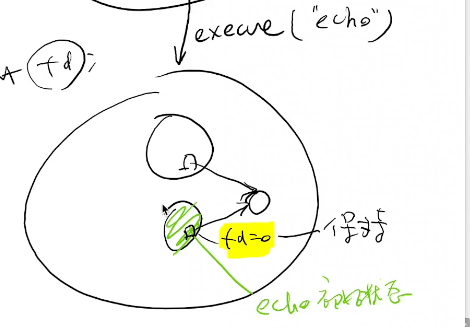 execve("echo")
A fd;
fd=0 保持
echo 初始状态